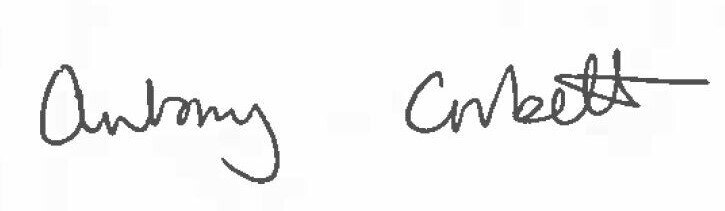 Antony Corbett